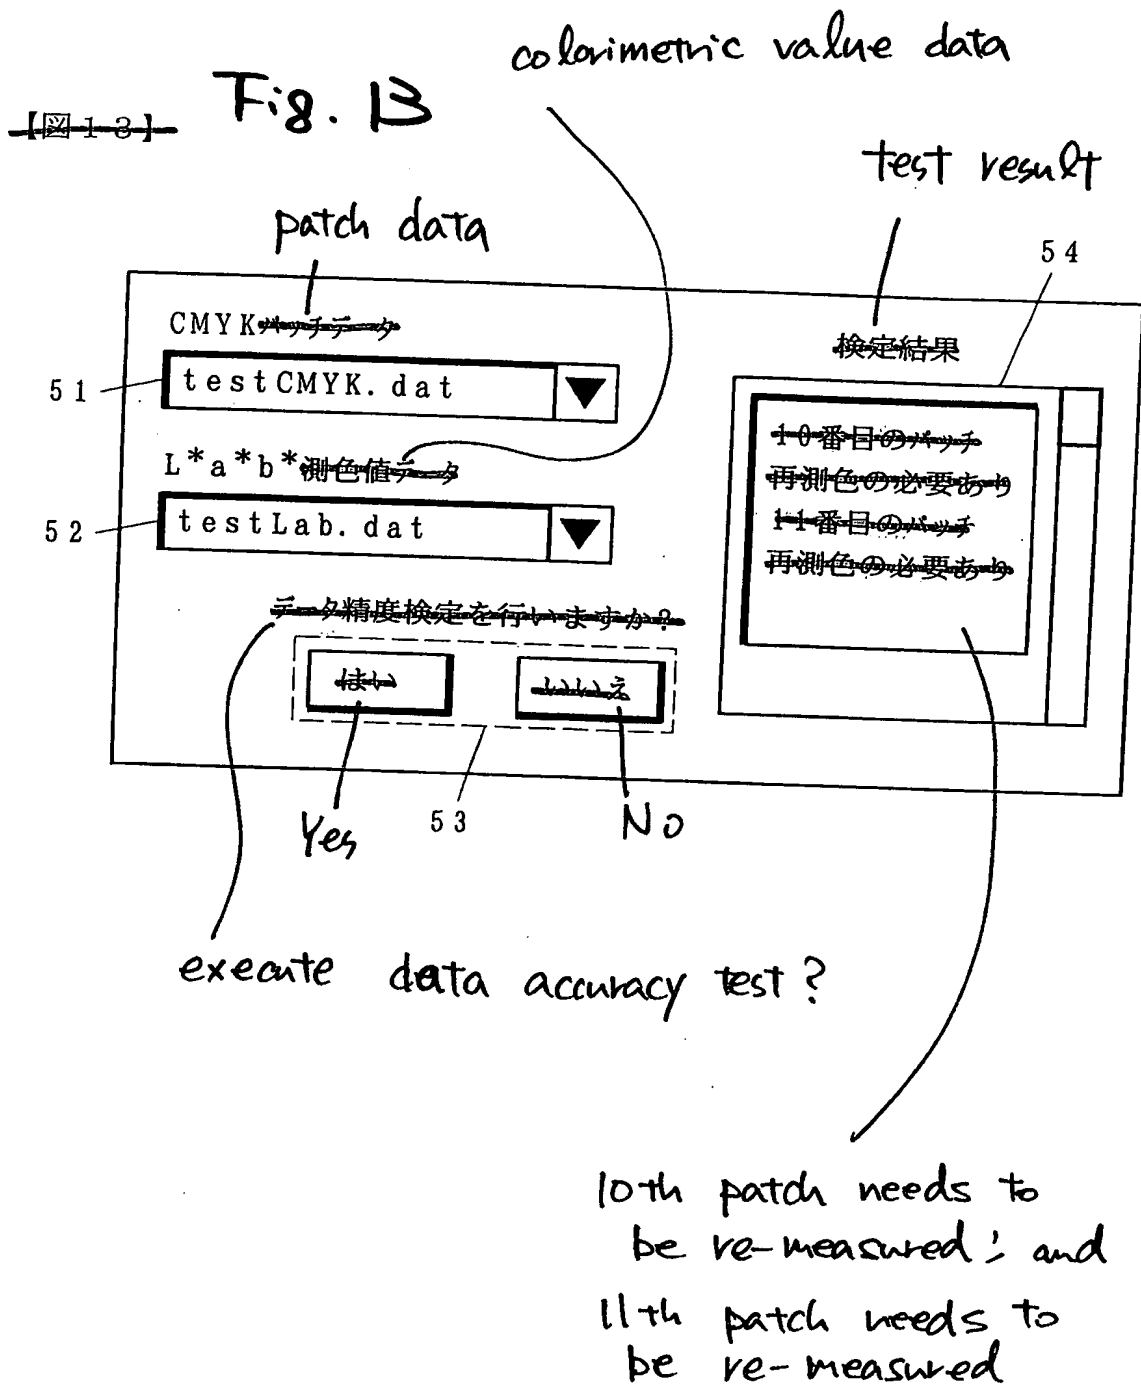 colorimetric value data
【図13】 Fig. 13
test result
patch data
54
CMYKパッチデータ
検定結果
51
testCMYK.dat
10番目のパッチ
L*a*b*測色値データ
再測色の必要あり
52
testLab.dat
11番目のパッチ
再測色の必要あり
データ精度検定を行いますか？
はい
いいえ
Yes
53
No
execute data accuracy test?
10th patch needs to
be re-measured; and
11th patch needs to
be re-measured